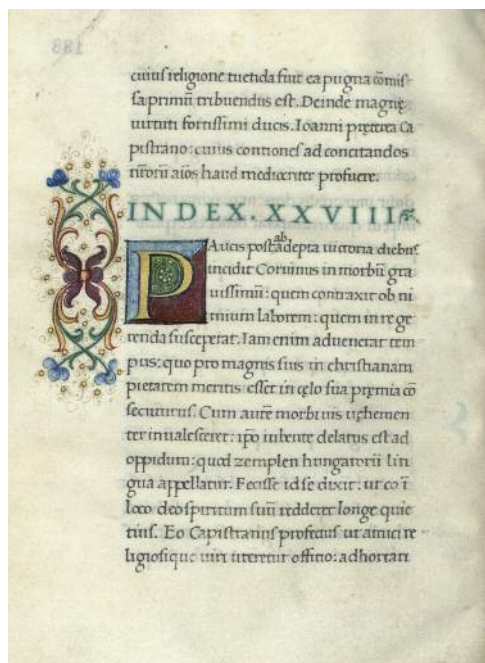 cuius religione tuẽda fuit ea pugna cõmis-
sa primũ tribuendus est. Deinde magnę
uirtuti fortissimi ducis. Ioanni pręterea Ca
pistrano: cuius contiones ad concitandos
nr̃orũ aĩos haud mediocriter profuere.
INDEX. XXVIII
PAucis post ab adepta uictoria diebus
incidit Coruinus in morbũ gra
uissimũ: quem contraxit ob ni
mium laborem: quem in re ge
renda susceperat. Iam enim aduenerat tem
pus: quo pro magnis suis in christianam
pietatem meritis esset in cęlo sua pręmia cõ
secuturus. Cum autẽ morbi uis uehemen
ter inualesceret: ip̃o iubente delatus est ad
oppidum: quod zemplen hungarorũ lin
gua appellatur. Fecisse id se dixit: ut eo ĩ
loco deo spiritum suũ redderet longe quie
tius. Eo Capistranus profectus ut amici re
ligiosique uiri uteretur offitio: adhortari
183